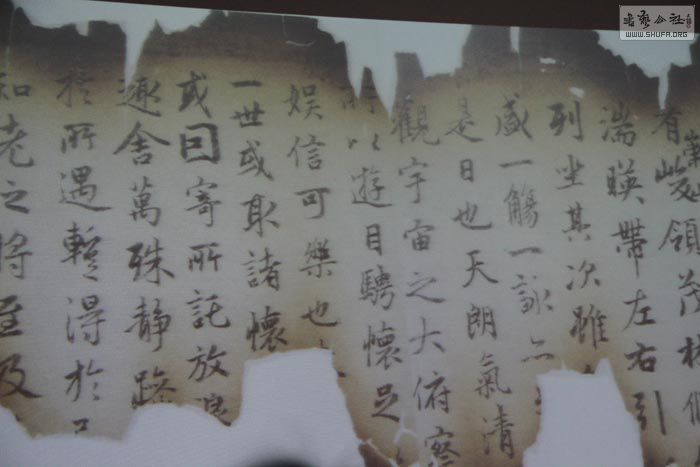 书艺公社
WWW.SHUFA.ORG
有峻領茂林脩
湍暎帶左右引
列坐其次雖
盛一觴一詠亦
是日也天朗氣清
觀宇宙之大俯察
所以遊目騁懷足
娛信可樂也
一世或取諸懷
或因寄所託放浪
趣舍萬殊静躁
於所遇蹔得於
知老之将至及